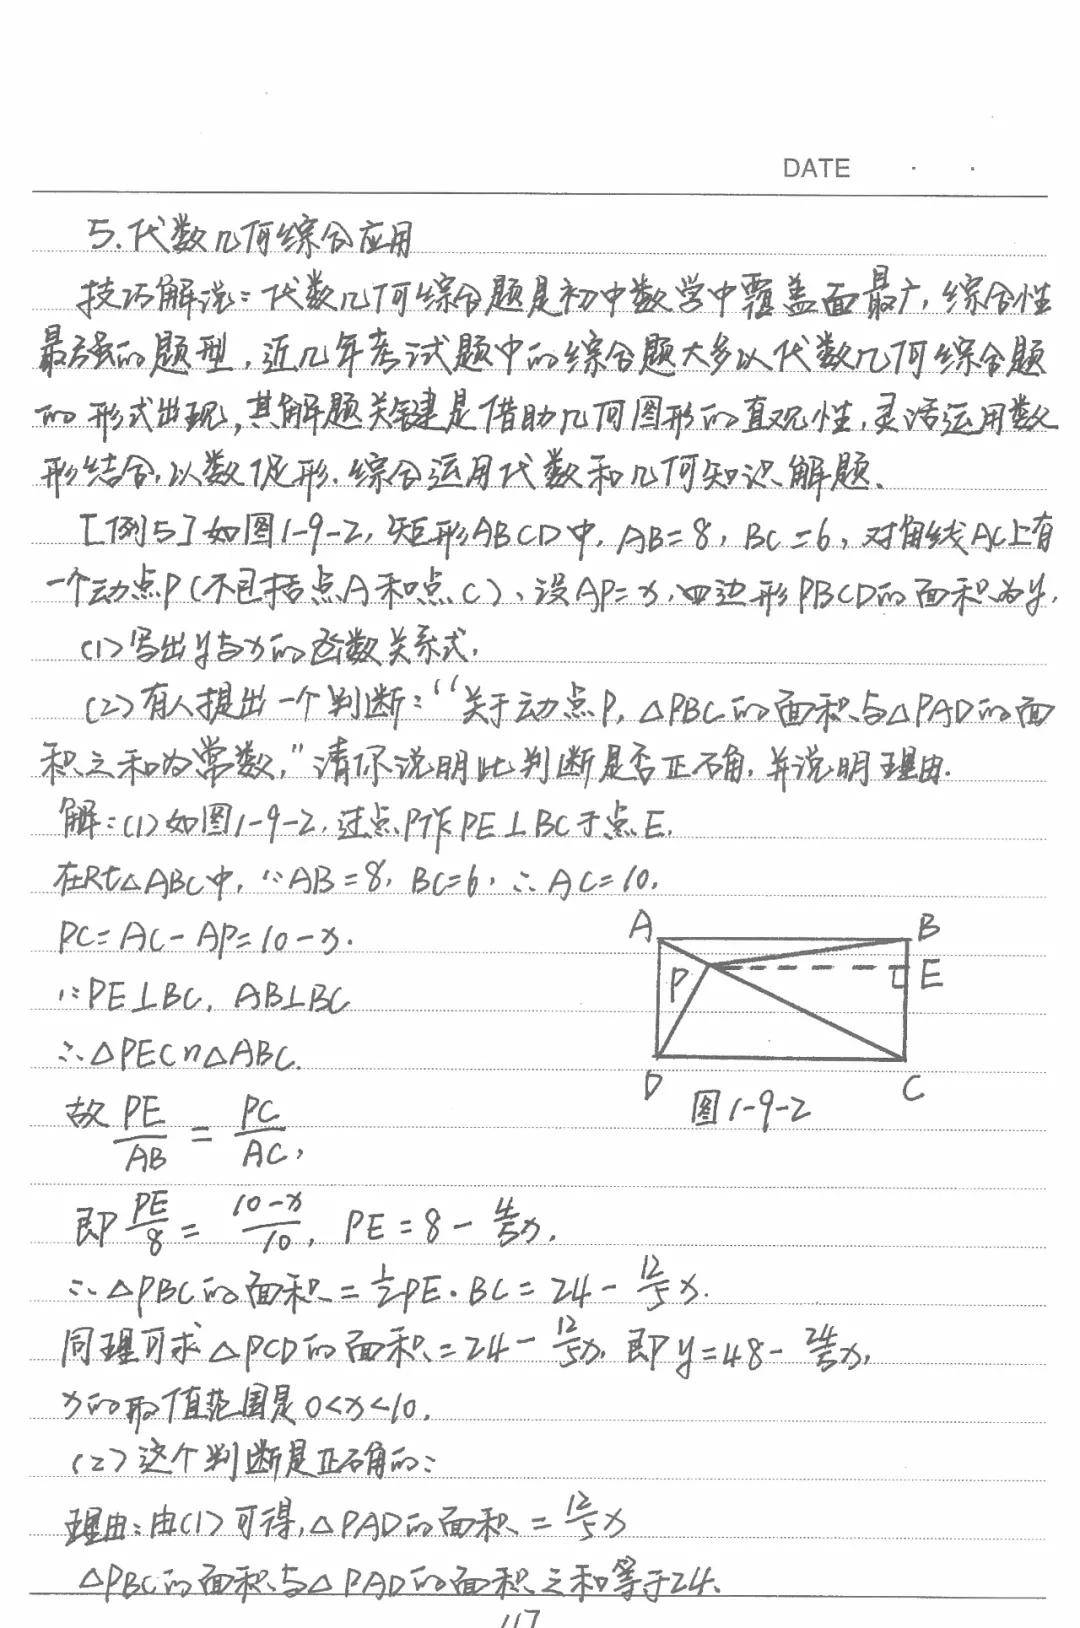 DATE · ·
5.代数几何综合应用
技巧解说:代数几何综合题是初中数学中覆盖面最广,综合性
最强的题型,近几年考试题中的综合题大多以代数几何综合题
的形式出现,其解题关键是借助几何图形的直观性,灵活运用数
形结合,以数促形.综合运用代数和几何知识解题、
[例5]如图1-9-2,矩形ABCD中,AB=8,BC=6,对角线AC上有
一个动点P(不包括点A和点C)、设AP=x,四边形PBCD的面积为y,
(1)写出y与x的函数关系式.
(2)有人提出一个判断:“关于动点P,△PBC的面积与△PAD的面
积之和为常数,”请你说明此判断是否正确,并说明理由.
解:(1)如图1-9-2,过点P作PE⊥BC于点E.
在Rt△ABC中,∵AB=8,BC=6,∴AC=10,
PC=AC-AP=10-x.
∵PE⊥BC,AB⊥BC
∴△PEC∽△ABC.
故 PE/AB = PC/AC,
即 PE/8 = (10-x)/10, PE=8-4/5x,
∴△PBC的面积=1/2PE·BC=24-12/5x.
同理可求△PCD的面积=24-12/5x,即y=48-24/5x,
x的取值范围是0<x<10,
(2)这个判断是正确的:
理由:由(1)可得,△PAD的面积=12/5x
△PBC的面积与△PAD的面积之和等于24、
A
B
P
E
D
C
图1-9-2
117